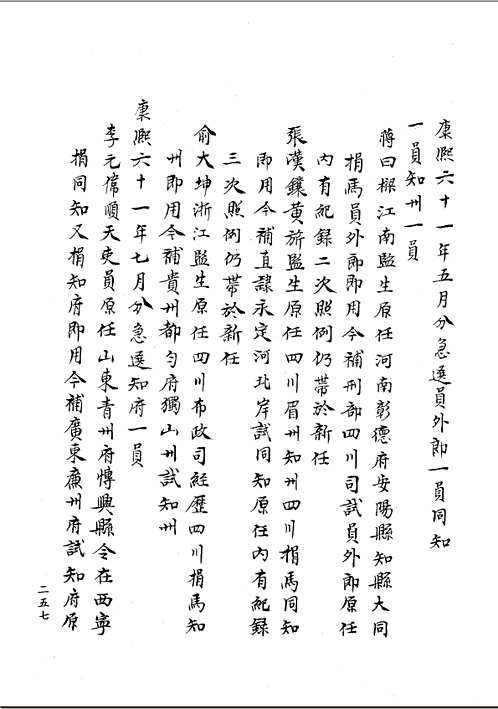 康熙六十一年五月分急選員外郎一員同知
一員知州一員
蔣曰樑江南監生原任河南彰德府安陽縣知縣大同
捐馬員外郎即用今補刑部四川司試員外郎原任
內有紀錄二次照例仍帶於新任
張漢鑲黃旂監生原任四川眉州知州四川捐馬同知
即用今補直隸永定河北岸試同知原任內有紀錄
三次照例仍帶於新任
俞大坤浙江監生原任四川布政司經歷四川捐馬知
州即用今補貴州都勻府獨山州試知州
康熙六十一年七月分急選知府一員
李元偉順天吏員原任山東青州府博興縣令在西寧
捐同知又捐知府即用今補廣東廉州府試知府原
二五七